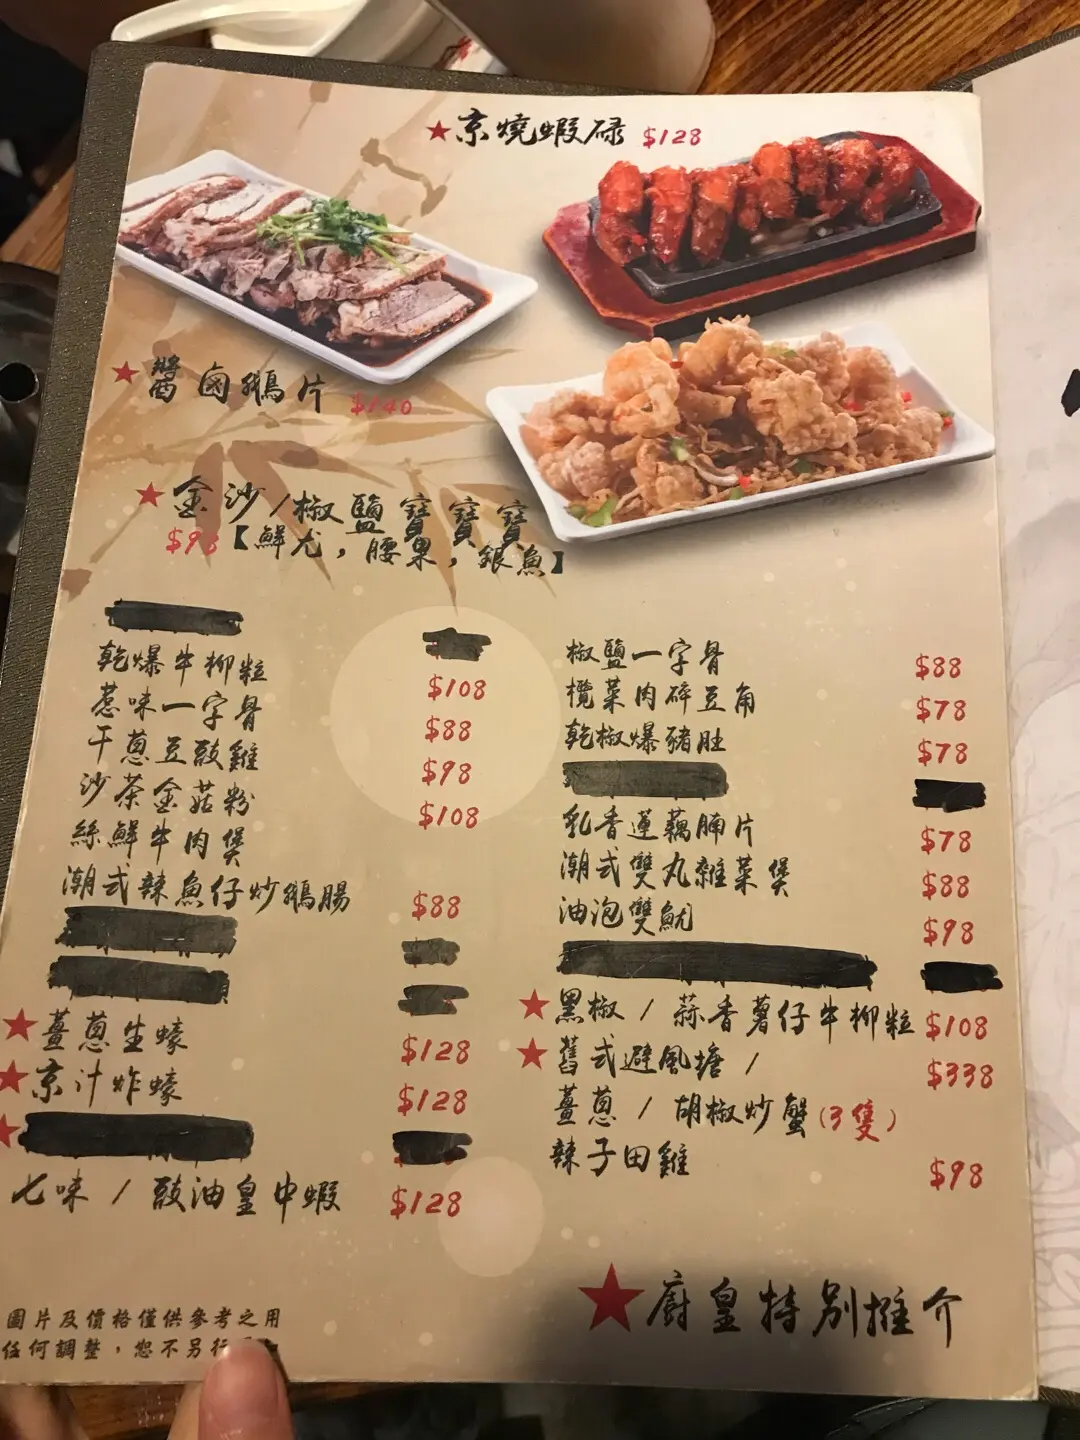 ★京燒蝦碌 $128
★醬鹵鵝片 $140
★金沙/椒鹽寶寶寶
$98【鮮尤，腰果，銀魚】
乾爆牛柳粒 $108
惹味一字骨 $88
干蔥豆豉雞 $98
沙茶金菇粉 $108
絲鮮牛肉煲
潮式辣魚仔炒鵝腸 $88
★薑蔥生蠔 $128
★京汁炸蠔 $128
★
七味 / 豉油皇中蝦 $128
椒鹽一字骨 $88
欖菜肉碎豆角 $78
乾椒爆豬肚 $78
乳香蓮藕腩片 $78
潮式雙丸雜菜煲 $88
油泡雙魷 $98
★黑椒 / 蒜香薯仔牛柳粒 $108
★舊式避風塘 / $338
薑蔥 / 胡椒炒蟹(3隻)
辣子田雞 $98
★廚皇特別推介
圖片及價格僅供參考之用
任何調整，恕不另行